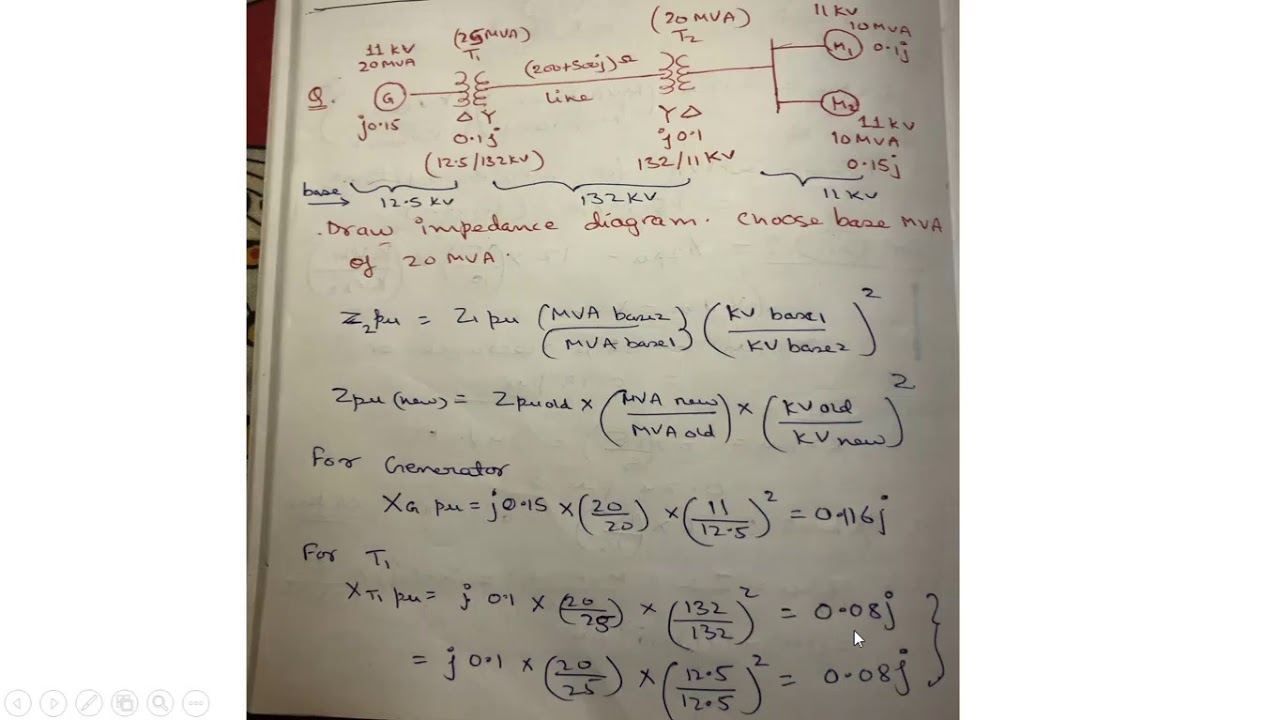 11 KV
20 MVA
(25 MVA)
T1
(20 MVA)
T2
11 KV
10 MVA
M1
0.1j
Q.
G
(200+500j) Ω
line
j0.15
Δ Y
0.1j
(12.5/132KV)
Y Δ
j0.1
132/11 KV
M2
11 KV
10 MVA
0.15j
base
12.5 KV
132 KV
11 KV
.Draw impedance diagram. Choose base MVA
of 20 MVA.
Z2 pu = Z1 pu (MVA base2 / MVA base1) (KV base1 / KV base2)²
Zpu (new) = Zpu old × (MVA new / MVA old) × (KV old / KV new)²
For Generator
XG pu = j0.15 × (20/20) × (11/12.5)² = 0.116j
For T1
XT1 pu = j 0.1 × (20/25) × (132/132)² = 0.08j
= j 0.1 × (20/25) × (12.5/12.5)² = 0.08j